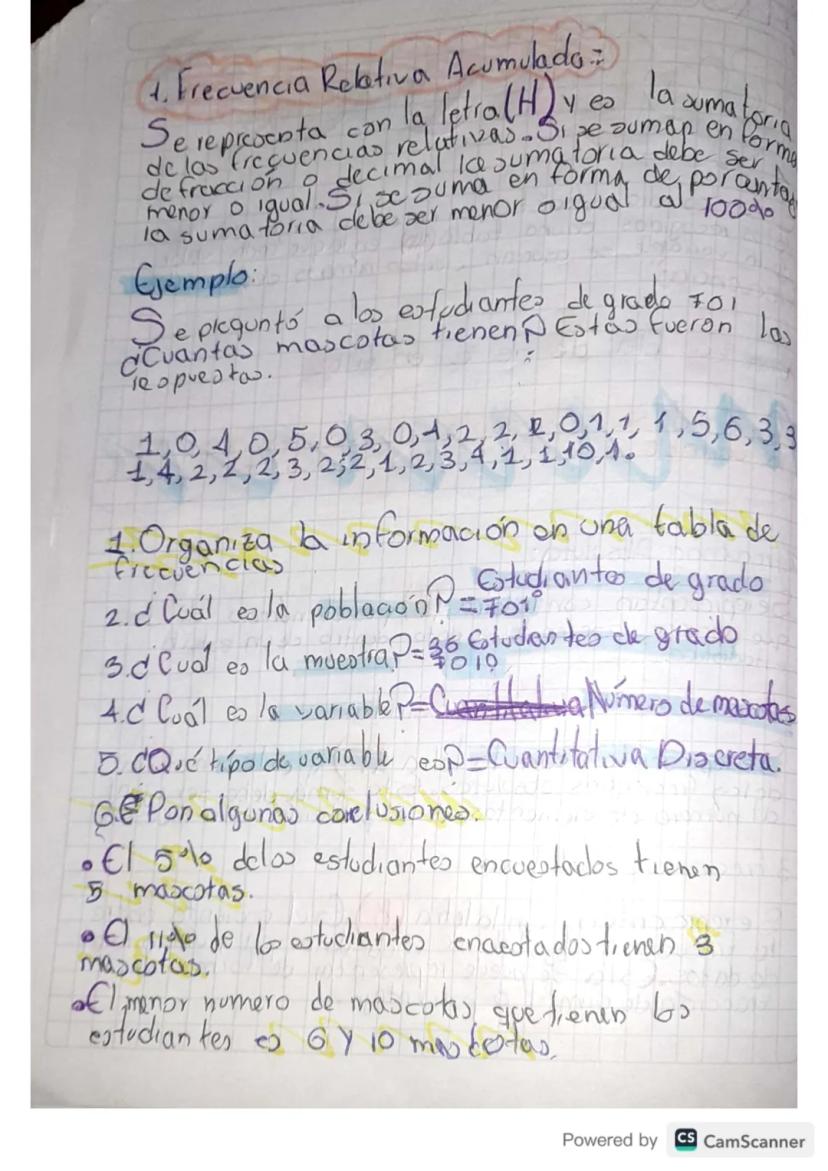 1. Frecuencia Relativa Acumulada:
Se representa con la letra (H) y es la sumatoria
de las frecuencias relativas. Si se suman en forma
de fracción o decimal la sumatoria debe ser
menor o igual. Si se suma en forma de porcentaje
la sumatoria debe ser menor o igual al 100%
Ejemplo:
Se preguntó a los estudiantes de grado 701
¿Cuantas mascotas tienen? Estas fueron las
respuestas.
1, 0, 1, 0, 5, 0, 3, 0, 1, 2, 2, 2, 0, 1, 1, 1, 5, 6, 3, 3
1, 4, 2, 1, 2, 3, 2, 2, 1, 2, 3, 4, 1, 1, 10, 1.
1. Organiza la información en una tabla de
frecuencias
Estudiantes de grado
2. ¿Cuál es la población? = 701°
3. ¿Cual es la muestra? = 36 Estudiantes de grado
701?
4. ¿Cuál es la variable? = Número de mascotas
5. ¿Qué típo de variable es? = Cuantitativa Discreta.
6. Pon algunas conclusiones.
• El 5% de los estudiantes encuestados tienen
5 mascotas.
• El 11% de los estudiantes encuestados tienen 3
mascotas.
• El menor numero de mascotas que tienen los
estudiantes es 6 y 10 mascotas.
Powered by CS CamScanner